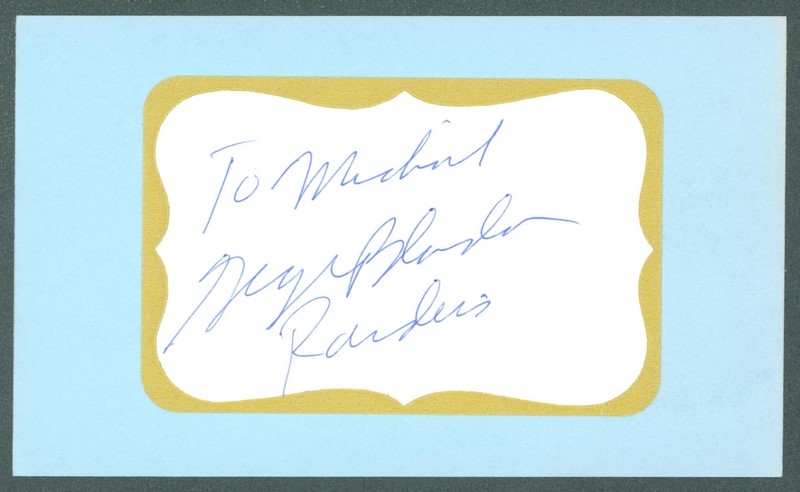 To Michael
George Blanda
Raiders